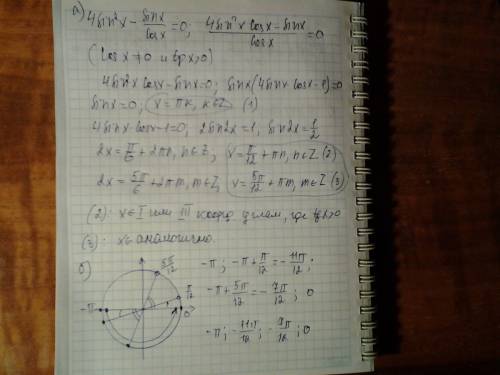 а) 4sin²x - sinx/cosx = 0; (4sin²x cosx - sinx)/cosx = 0
(cosx ≠ 0 и tgx > 0)
4sin²x cosx - sinx = 0; sinx(4sinx cosx - 1) = 0
sinx = 0; x = πk, k∈Z (1)
4sinx·cosx - 1 = 0; 2sin2x = 1, sin2x = 1/2
2x = π/6 + 2πn, n∈Z, x = π/12 + πn, n∈Z (2)
2x = 5π/6 + 2πm, m∈Z, x = 5π/12 + πm, m∈Z (3)
(2): x∈ I или III коорд углам, где tgx>0
(3): x∈ аналогично.
б) 5π/12 π/12 -π 0
-π; -π + π/12 = -11π/12;
-π + 5π/12 = -7π/12; 0
-π; -11π/12; -7π/12; 0